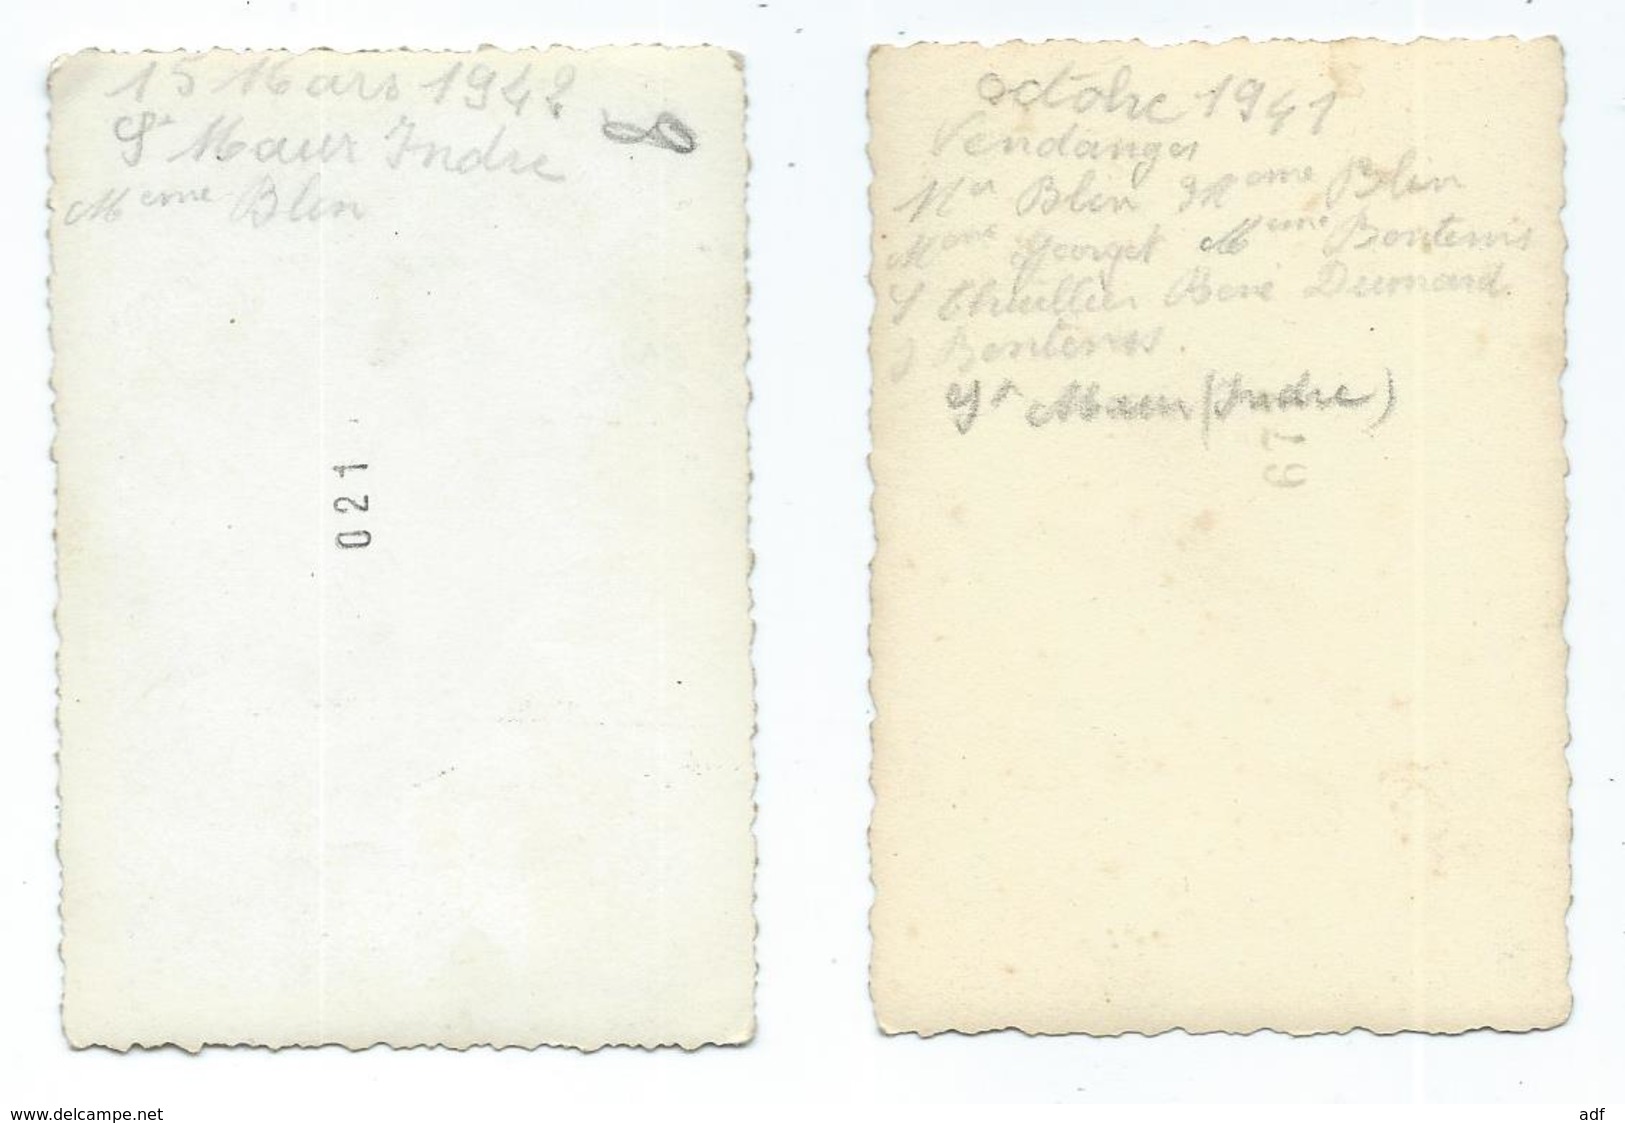 15 Mars 1942
St Maur Indre
8
Meme Blin
021
octobre 1941
Vendanges
Mr Blin Meme Blin
Meme Georget Meme Bontems
S Thuillier René Dumard
J Bontems.
St Maur (Indre)
19
www.delcampe.net
adf